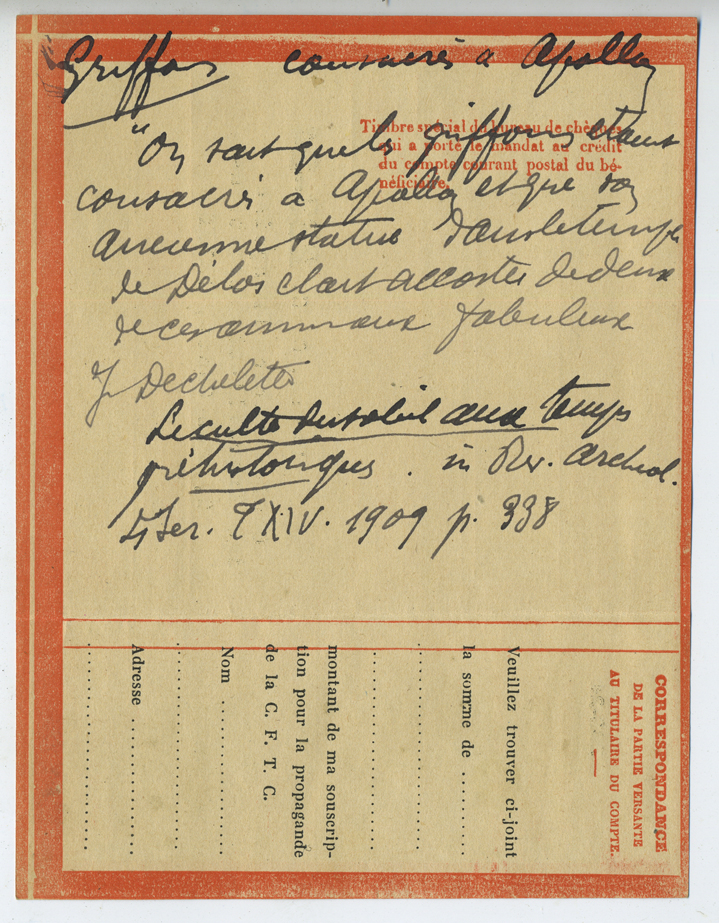 Griffons consacrés à Apollon
"On sait que les griffons étaient
consacrés à Apollon et que son
ancienne statue dans le temple
de Délos était accostée de deux
de ces animaux fabuleux
J. Dechelette
Le culte du soleil aux temps
préhistoriques . in Rev. Archeol.
4 Ser. T XIV. 1909 p. 338
Timbre spécial du bureau de chèques
qui a porté le mandat au crédit
du compte courant postal du bé-
néficiaire.
CORRESPONDANCE
DE LA PARTIE VERSANTE
AU TITULAIRE DU COMPTE.
Veuillez trouver ci-joint
la somme de ..........
montant de ma souscrip-
tion pour la propagande
de la C. F. T. C.
Nom ....................
Adresse ................